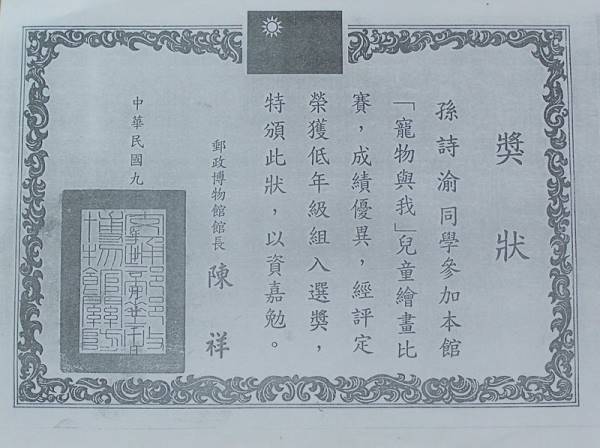 獎狀
孫詩渝同學參加本館
「寵物與我」兒童繪畫比
賽，成績優異，經評定
榮獲低年級組入選獎，
特頒此狀，以資嘉勉。
郵政博物館館長 陳祥
中華民國九